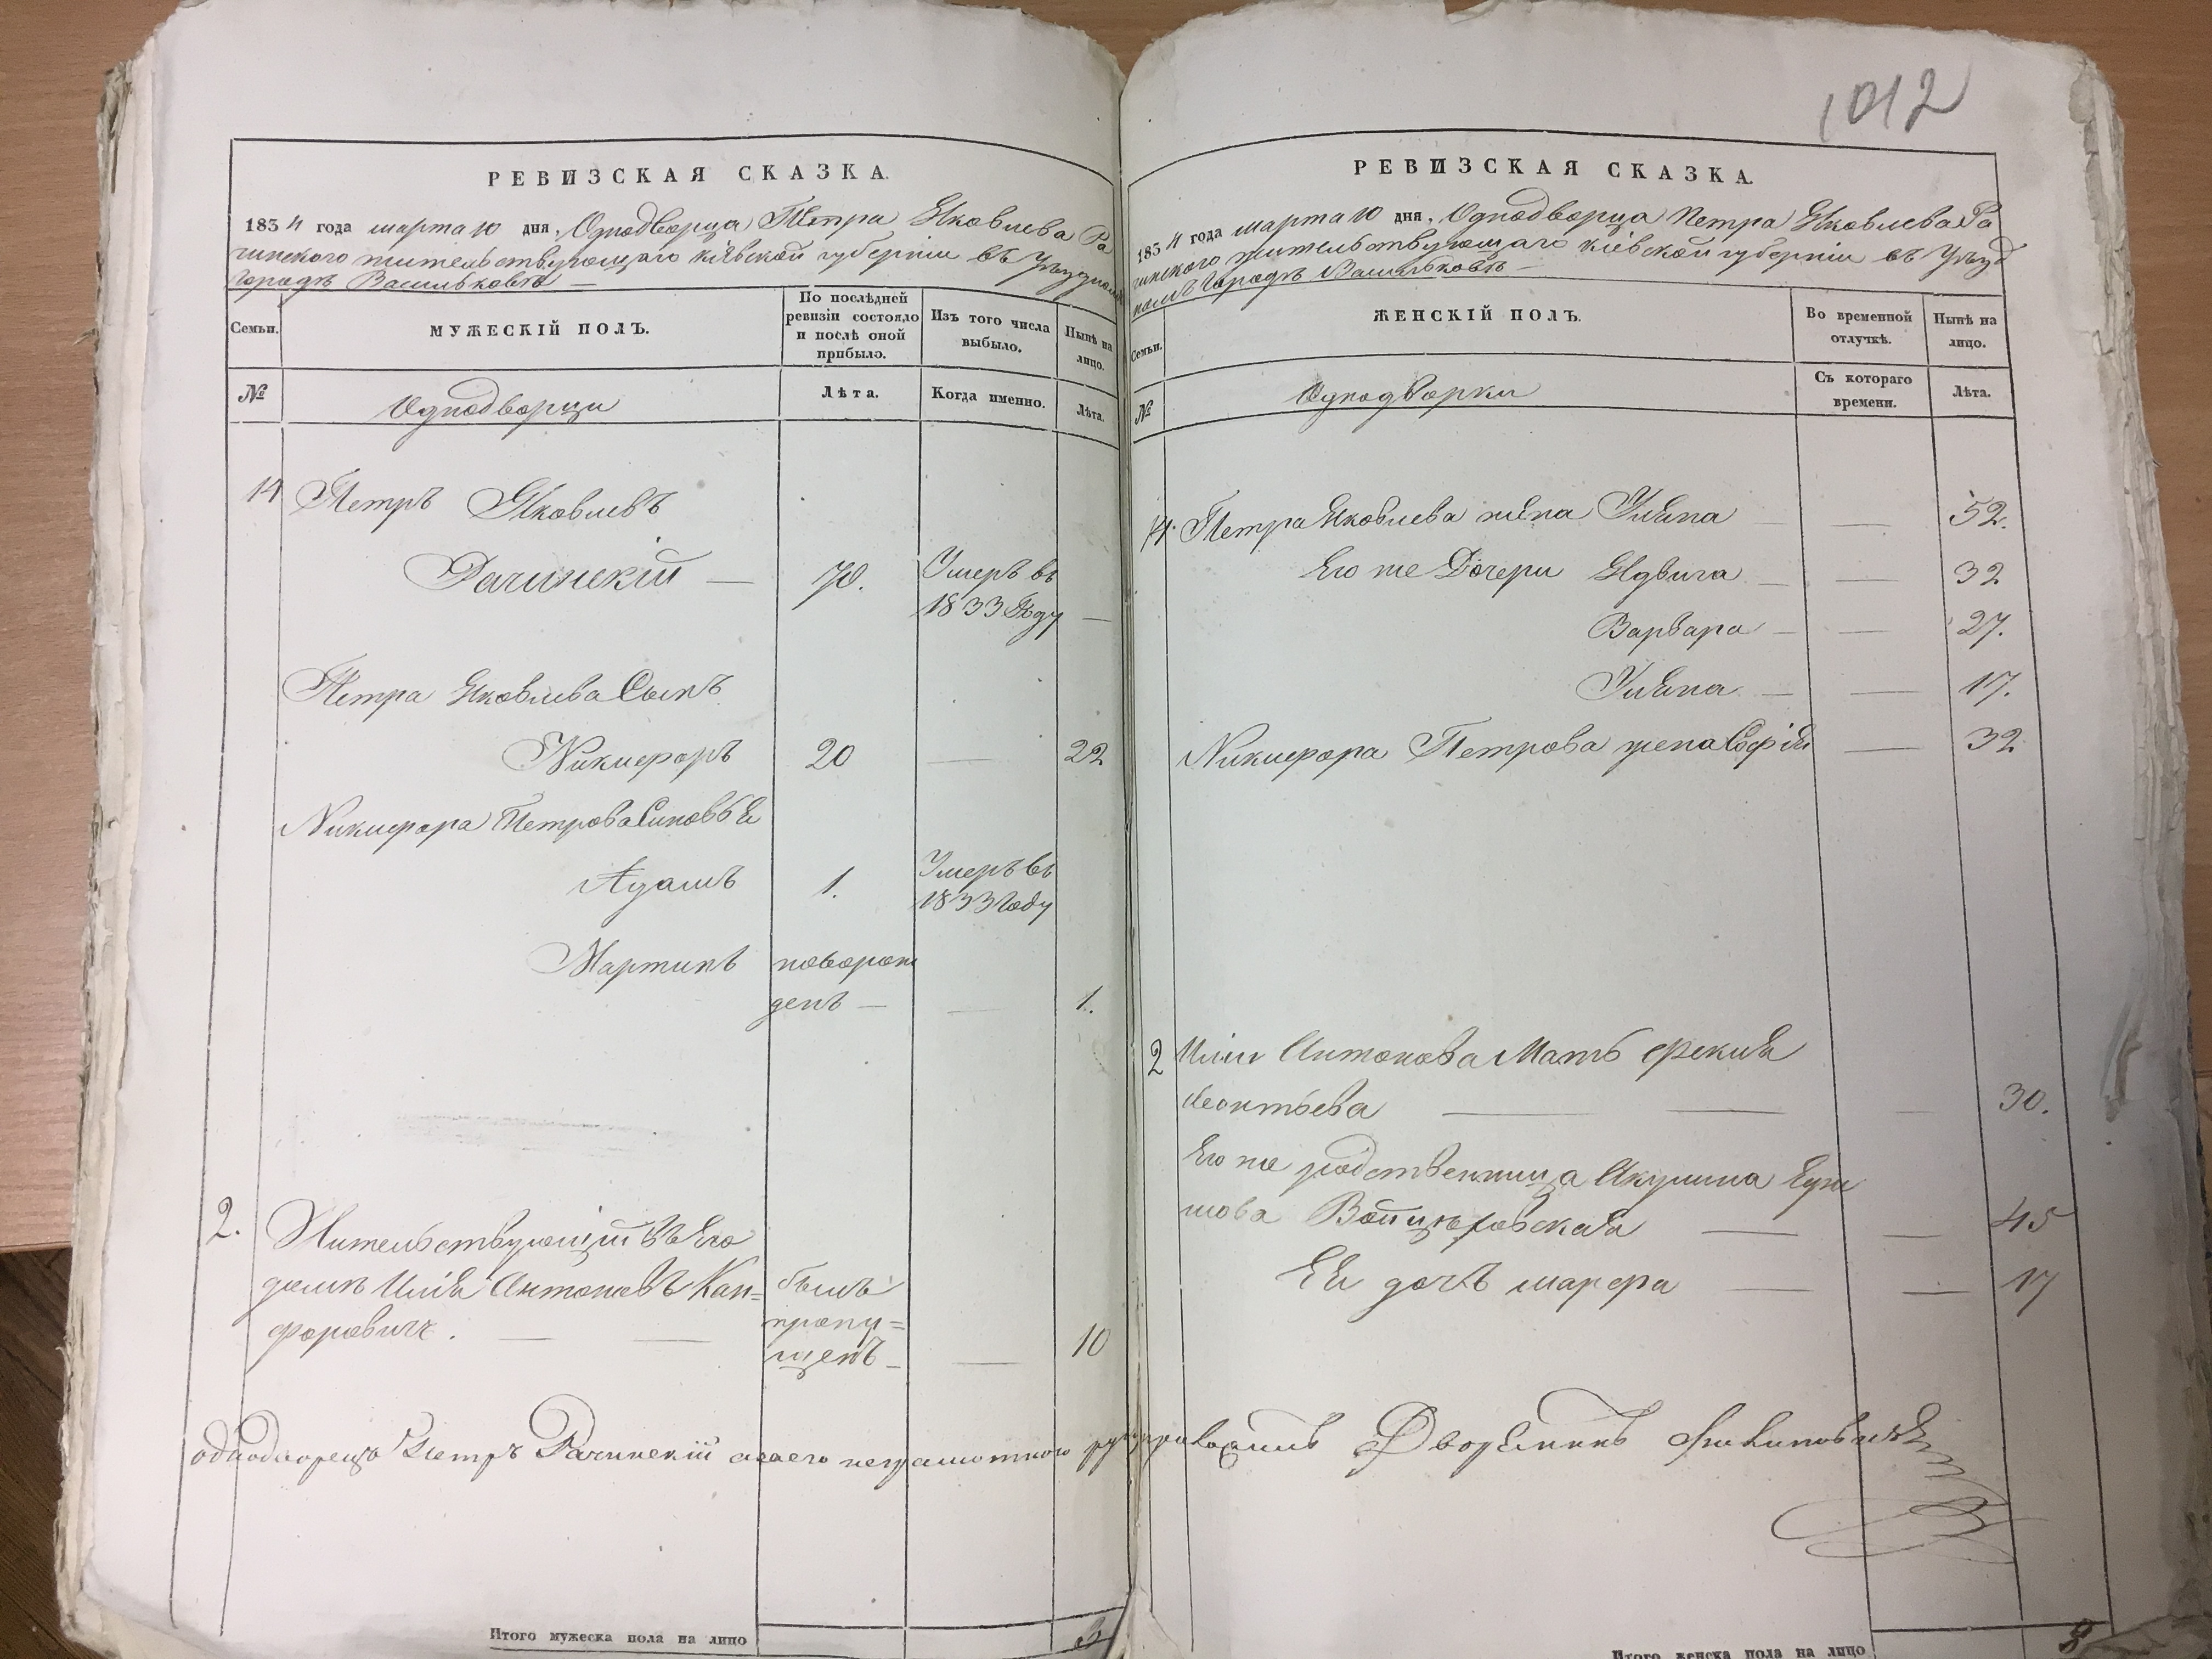 1012
РЕВИЗСКАЯ СКАЗКА.
1834 года марта 10 дня, Однодворца Петра Яковлева Ра
чинского жительствующаго Кіевской губерніи въ Уѣздномъ
городѣ Васильковѣ —
Семьи.
МУЖЕСКІЙ ПОЛЪ.
По послѣдней
ревизіи состояло
и послѣ оной
прибыло.
Изъ того числа
выбыло.
Нынѣ на
лицо.
№
Однодворци
Лѣта.
Когда именно.
Лѣта.
14 Петръ Яковлевъ
Рачинскій — 70. Умеръ въ
1833 Году —
Петра Яковлева Сынъ
Никифоръ 20 — 22
Никифора Петрова Синовья
Адамъ 1. Умеръ въ
1833 Году
Мартинъ новорож
денъ — — 1.
2. Жительствующій въ Его
домѣ Илія Антоновъ Кан= былъ
форовичъ. — — пропу=
щенъ — — 10
однодворецъ Петръ Рачинскій а за его неграмотного
Итого мужеска пола на лицо 3
РЕВИЗСКАЯ СКАЗКА.
1834 года марта 10 дня, Однодворца Петра Яковлева Ра
чинского жительствующаго Кіевской губерніи въ Уѣзд
номъ Городѣ Васильковѣ —
Семьи.
ЖЕНСКІЙ ПОЛЪ.
Во временной
отлучкѣ.
Нынѣ на
лицо.
№
Однодворки
Съ котораго
времени.
Лѣта.
14. Петра Яковлева жена Уляна — 52.
Его же Дочери Ядвига — — 32
Варвара — — 27.
Уляна — — 17.
Никифора Петрова жена Софія — 32
2 Иліи Антонова Мать
Леонтьева — — — 30.
Его же родственница Акулина
— — 45
Ея дочъ марфа — — 17
Дворянинъ
Итого женска пола на лицо 8